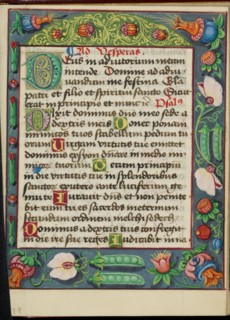 Ad Vesperas.
Deus in adiutorium meum
intende Domine ad adiu
uandum me festina Glo
ria patri et filio et spiritui sancto Sicut
erat in principio et nunc Psal
Dixit dominus domino meo sede a
dextris meis Donec ponam
inimicos tuos scabellum pedum tu
orum Uirgam uirtutis tue emittet
dominus ex syon dominare in medio ini
tuorum Tecum principium
in die uirtutis tue in splendoribus
sanctorum ex utero ante luciferum ge
nui te Iurauit dominus et non penite
bit eum tu es sacerdos in eternum
secundum ordinem melchisedech
Dominus a dextris tuis confregit
in die ire sue reges Iudicabit in na